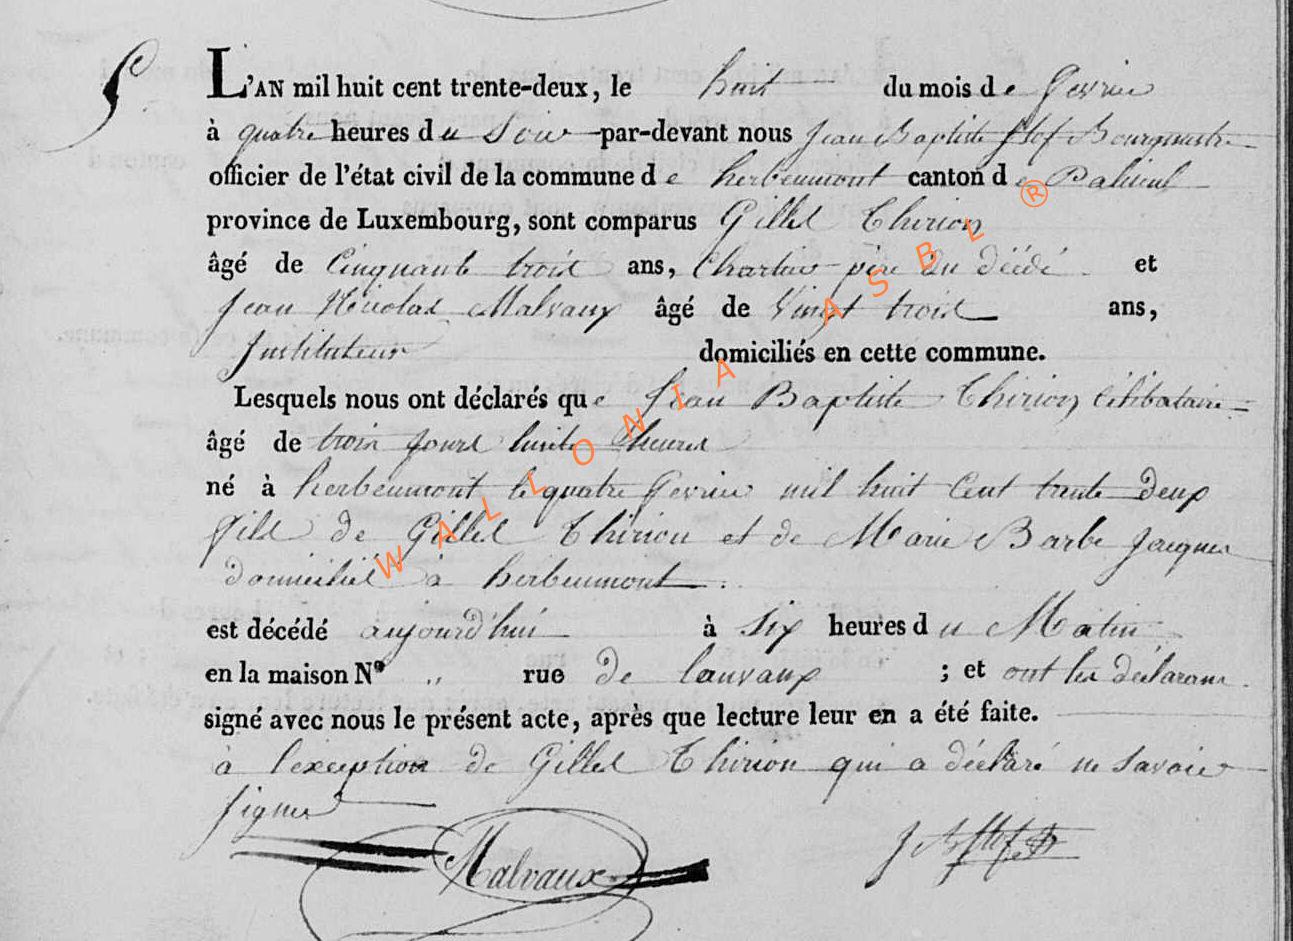 L'AN mil huit cent trente-deux, le huit du mois de fevrier
à quatre heures du soir par-devant nous Jean Baptiste Bourgmestre
officier de l'état civil de la commune de herbeumont canton de Paliseul
province de Luxembourg, sont comparus Gilles Thirion
âgé de Cinquante trois ans, père du décédé et
Jean Nicolas Malvaux âgé de Vingt trois ans,
Instituteur domiciliés en cette commune.
Lesquels nous ont déclarés que Jean Baptiste Thirion Célibataire
âgé de trois jours huit heures
né à herbeumont le quatre fevrier mil huit Cent trente deux
fils de Gilles Thirion et de Marie Barbe Jacques
domiciliés à herbeumont
est décédé aujourd'hui à six heures du Matin
en la maison N° „ rue de lauvaux ; et ont les déclarans
signé avec nous le présent acte, après que lecture leur en a été faite.
à l'exception de Gilles Thirion qui a déclaré ne savoir
signer
Malvaux
WALLONIA ASBL ®